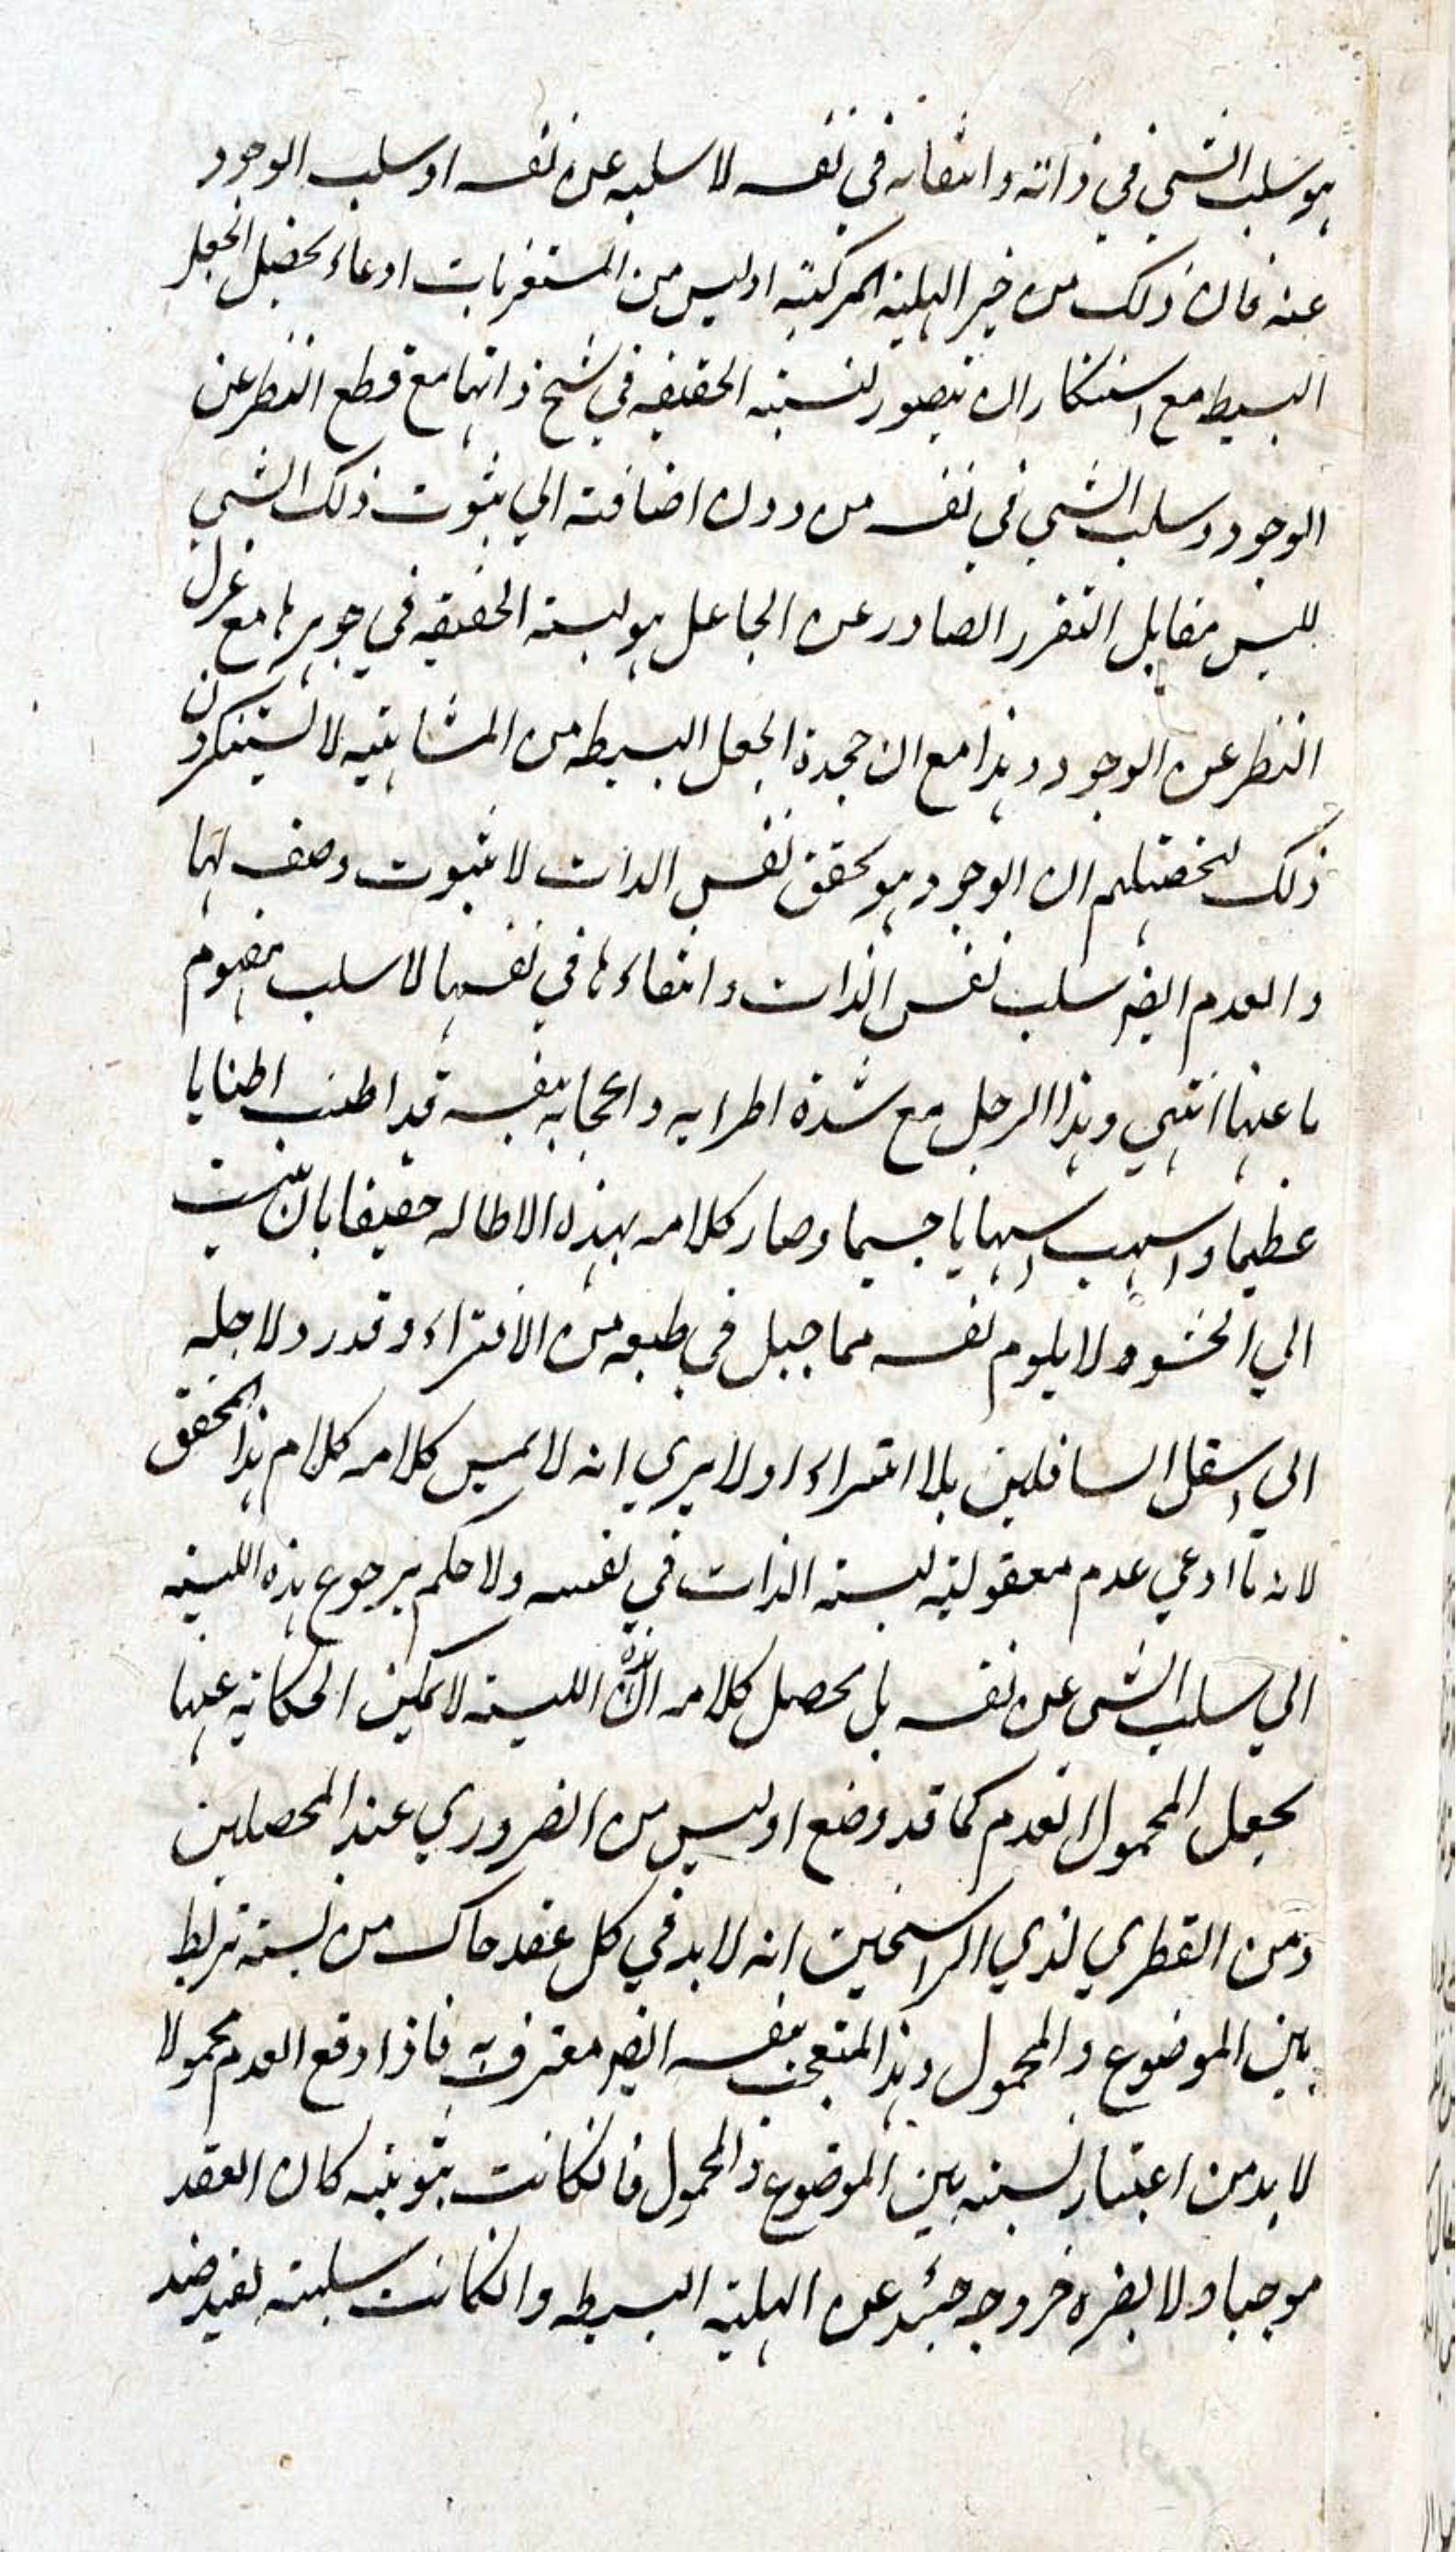 هو سلب الشي في ذاته وانتفائه في نفسه لا سلبه عن نفسه او سلب الوجود
عنه فان ذلك من خير الهلية المركبة اوليس من المستغربات ادعاء تحصيل الجعل
البسيط مع استنكار ان يتصور لنسبته الحقيقه في سنخ ذاتها مع قطع النظر عن
الوجود وسلب الشي في نفسه من دون اضافته الي ثبوت ذلك الشي
ليس مقابل التقرر الصادر عن الجاعل هو ليسته الحقيقه في جوهرها مع عزل
النظر عن الوجود وهذا مع ان حجدة الجعل البسيط من المشائيه لا يستنكرون
ذلك لتحصيلهم ان الوجود هو تحقق نفس الذات لا ثبوت وصف لها
والعدم ايضر سلب نفس الذات وانتفاءها في نفسها لا سلب مفهوم
ما عنها انتهي وهذا الرجل مع شدة اطرايه واعجابه بنفسه قد اطنب اطنابا
عظيما واسهب اسهابا جسيما وصار كلامه بهذه الاطاله حقيقا بان ينسب
الي الحشو ولا يلوم نفسه مما جبل في طبعه من الافتراء وقدرد ولاجله
الي اسفل السافلين بلا امتراء اولا يري انه لا يمس كلامه كلام هذا المحقق
لانه ما ادعي عدم معقولية ليسته الذات في نفسه ولا حكم برجوع هذه الليسيه
الي سلب الشي عن نفسه بل محصل كلامه ان هذه الليسيه لا يمكن الحكاية عنها
بجعل المحمول العدم كما قد وضع اوليس من الضروري عند المحصلين
ومن الفطري لذي الراسخين انه لا بد في كل عقد حاك من نسبة تربط
بين الموضوع والمحمول وهذا المتعجب بنفسه ايضر معترف به فاذا وقع العدم محمولا
لا بد من اعتبار نسبته بين الموضوع والمحمول فانكانت ثبوتيه كان العقد
موجبا ولا يضره خروجه حينئذ عن الهلية البسيطه وانكانت سلبيته تفيد ضد